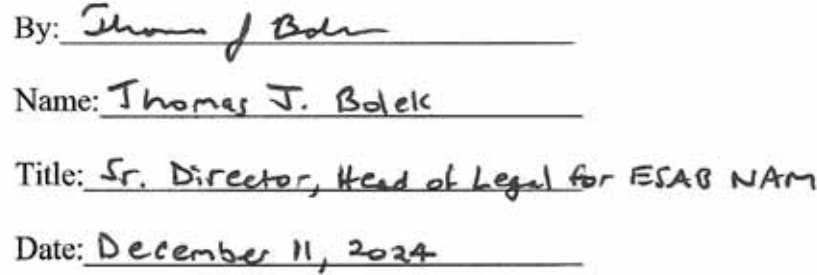 By: Thomas J Bolek
Name: Thomas J. Bolek
Title: Sr. Director, Head of Legal for ESAB NAM
Date: December 11, 2024